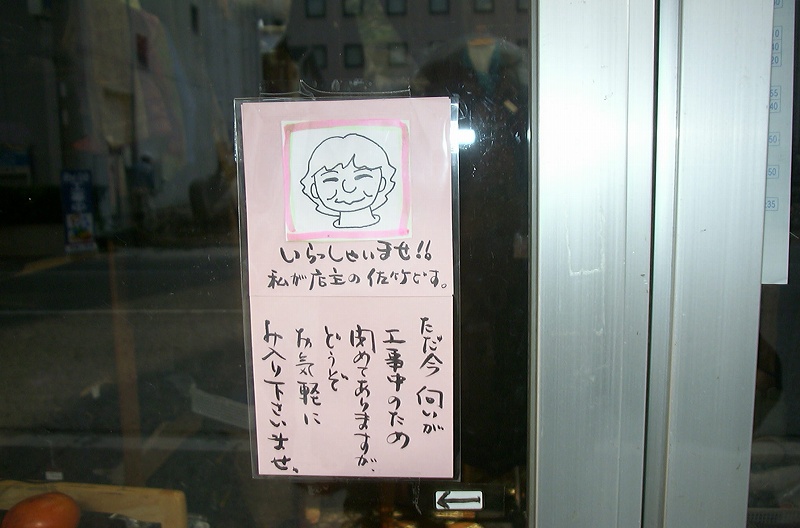 いらっしゃいませ!!
私が店主の佐竹です。
ただ今 向いが
工事中のため
閉めてありますが、
どうぞ
お気軽に
お入り下さいませ。
←